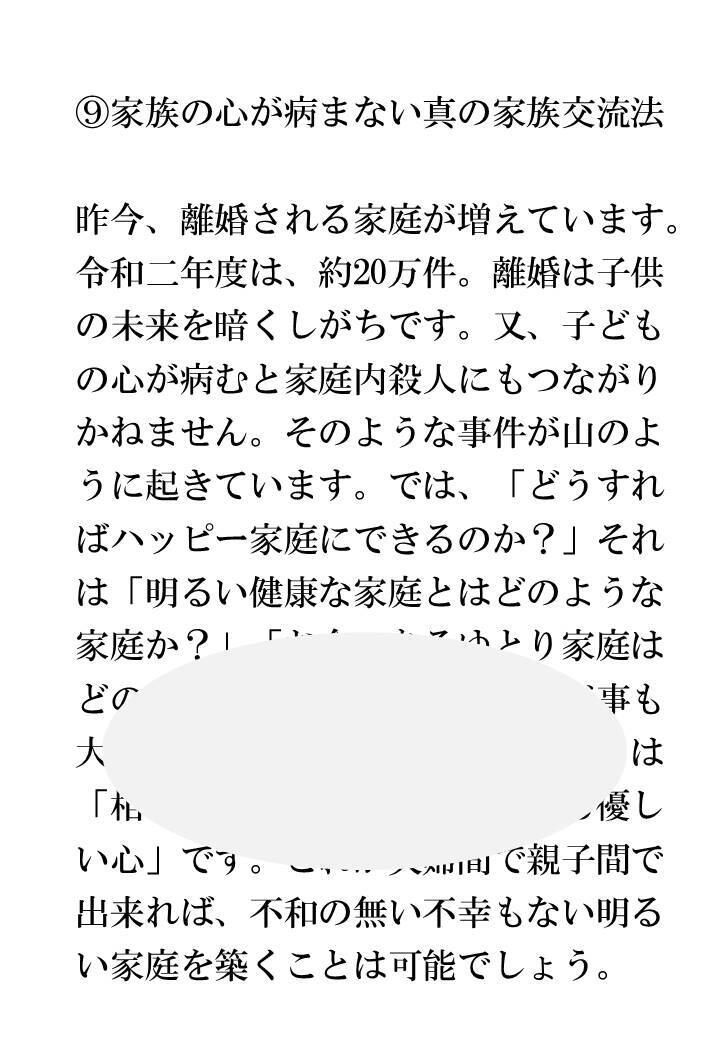 ⑨家族の心が病まない真の家族交流法
昨今、離婚される家庭が増えています。
令和二年度は、約20万件。離婚は子供
の未来を暗くしがちです。又、子ども
の心が病むと家庭内殺人にもつながり
かねません。そのような事件が山のよ
うに起きています。では、「どうすれ
ばハッピー家庭にできるのか？」それ
は「明るい健康な家庭とはどのような
家庭か？」「 ゆとり家庭は
どの 事も
大 は
「相 優し
い心」です。 夫婦間で親子間で
出来れば、不和の無い不幸もない明る
い家庭を築くことは可能でしょう。